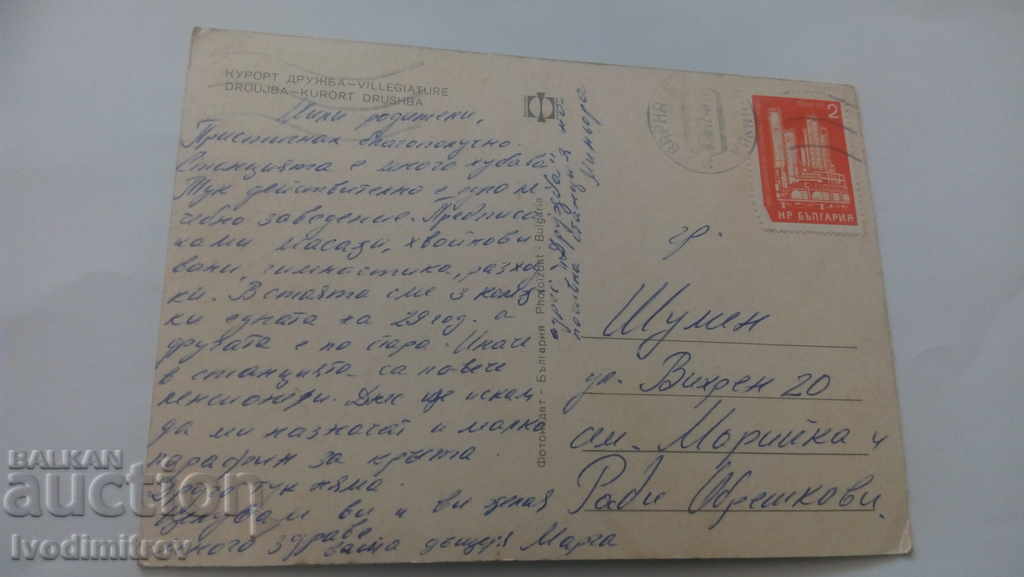 КУРОРТ ДРУЖБА-VILLEGIATURE
DROUJBA-KURORT DRUSHBA
Мили родители,
Пристигнах благополучно.
Станцията е много хубава
Тук действително е проле
чебно заведение. Предписа
ха ми масажи, хвойнови
вани, гимнастика, разход
ки. В стаята сме 3 
ки едната на 29 год. а
другата е по стара. Иначе
в станцията са повече
пенсионери. Днес ще искам
да ми назначат и малко
парафин за кръста.
Друго тук няма.
Целувам ви и ви желая
много здраве
ваша дъщеря Марга
Фотоиздат - България Photoizdat - Bulgaria
адрес "Дружба"
почивна станция на
Миньора
ВАРНА
2
НР БЪЛГАРИЯ
гр.
Шумен
ул. Вихрен 20
сем. Марийка и
Ради Обрешкови
BALKAN
auction
Ivodimitrov